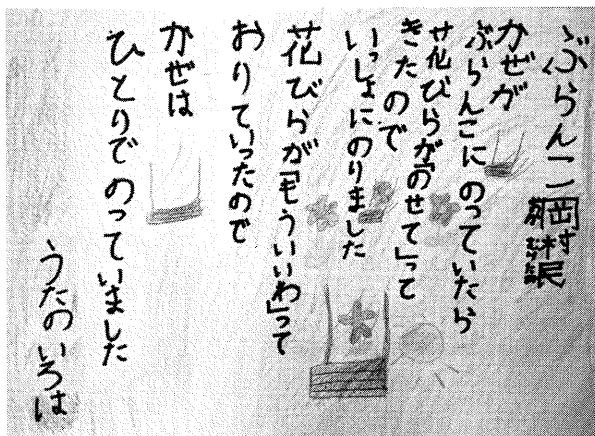 ぶらんこ 岡村民
かぜが
ぶらんこにのっていたら
花びらが「のせて」って
きたので
いっしょにのりました
花びらが「もういいわ」って
おりていったので
かぜは
ひとりでのっていました
うたのいろは